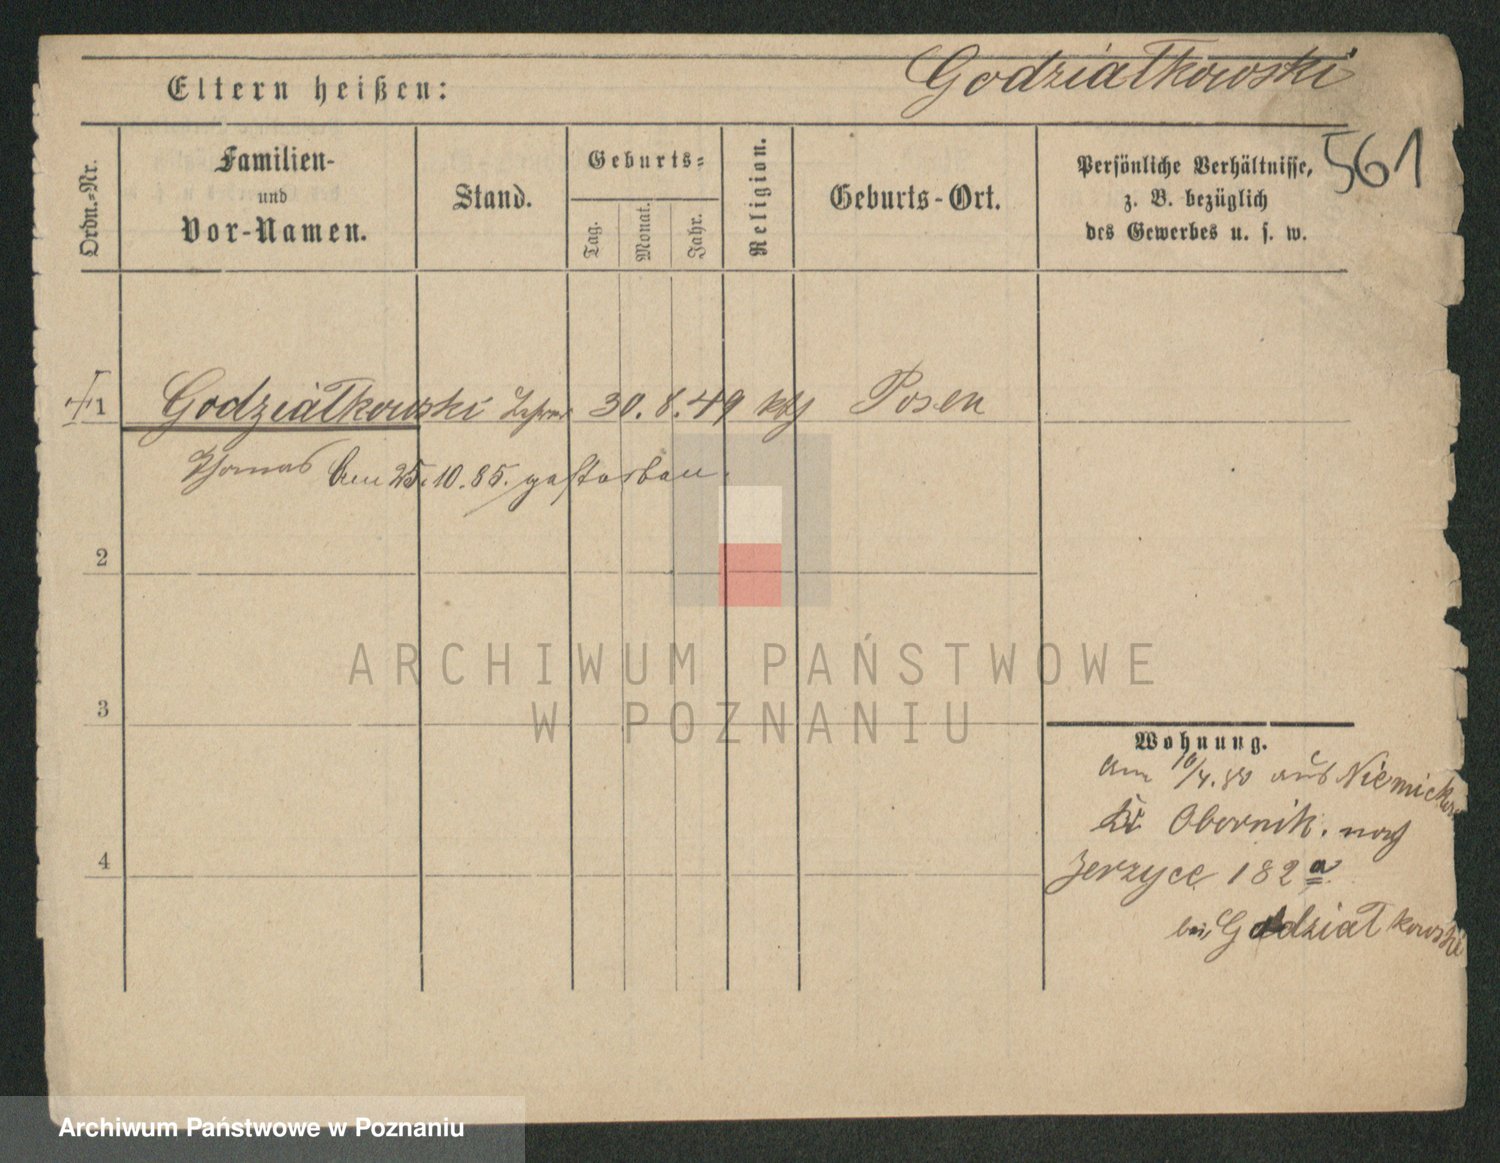 Godziatkowski
Eltern heißen:
561
Ordn.-Nr.
Familien-
und
Vor-Namen.
Stand.
Geburts-
Tag.
Monat.
Jahr.
Religion.
Geburts-Ort.
Persönliche Verhältnisse,
z. B. bezüglich
des Gewerbes u. s. w.
1 Godziatkowski Lehrer 30. 8. 49 kth Posen
Thomas Am 25.10.85. gestorben.
2
3
4
Wohnung.
Am 10/4.80 aus
Obornik. nach
Jerzyce 182a
bei Godziatkowski
ARCHIWUM PAŃSTWOWE
W POZNANIU
Archiwum Państwowe w Poznaniu